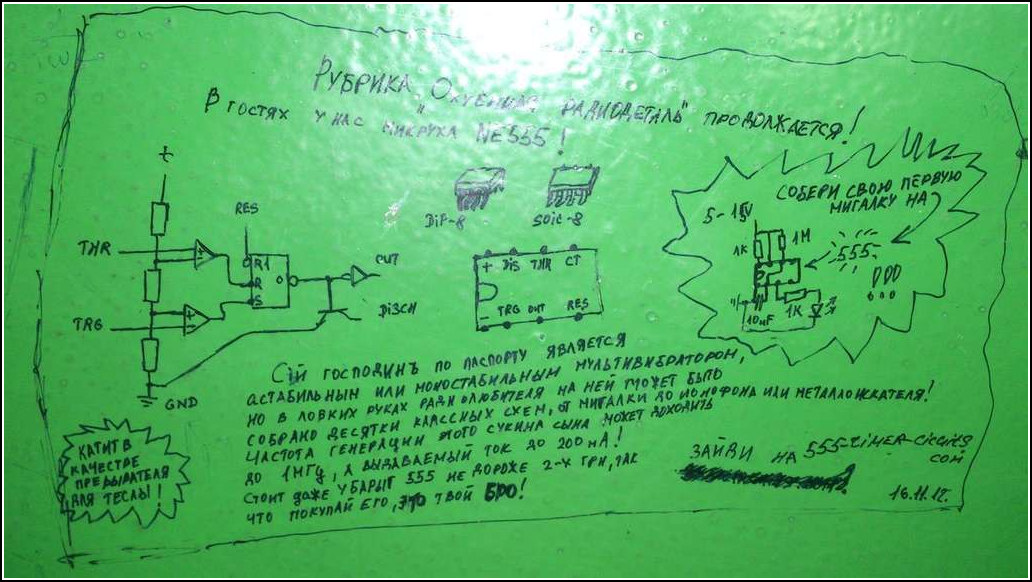 РУБРИКА „Охуенная радиодеталь" ПРОДОЛЖАЕТСЯ!
В ГОСТЯХ У НАС МИКРУХА NE555!
DIP-8
SOIC-8
СОБЕРИ СВОЮ ПЕРВУЮ
МИГАЛКУ НА
555
5-15V
1К
1М
10мF
1К
+
RES
THR
TRG
R1
R
S
OUT
DISCH
GND
+ DIS THR CT
- TRG OUT RES
СIЙ ГОСПОДИНЪ ПО ПАСПОРТУ ЯВЛЯЕТСЯ
АСТАБИЛЬНЫМ ИЛИ МОНОСТАБИЛЬНЫМ МУЛЬТИВИБРАТОРОМ,
НО В ЛОВКИХ РУКАХ РАДИОЛЮБИТЕЛЯ НА НЕЙ МОЖЕТ БЫТЬ
СОБРАНО ДЕСЯТКИ КЛАССНЫХ СХЕМ, ОТ МИГАЛКИ ДО ИОНОФОНА ИЛИ МЕТАЛЛОИСКАТЕЛЯ!
ЧАСТОТА ГЕНЕРАЦИИ ЭТОГО СУКИНА СЫНА МОЖЕТ ДОХОДИТЬ
ДО 1МГц, А ВЫДАВАЕМЫЙ ТОК ДО 200мА!
СТОИТ ДАЖЕ У БАРЫГ 555 НЕ ДОРОЖЕ 2-Х ГРН, ТАК
ЧТО ПОКУПАЙ ЕГО, ЭТО ТВОЙ БРО!
КАТИТ В
КАЧЕСТВЕ
ПРЕРЫВАТЕЛЯ
ДЛЯ ТЕСЛЫ!
ЗАЙДИ НА 555-timer-circuits
com
16.11.12.